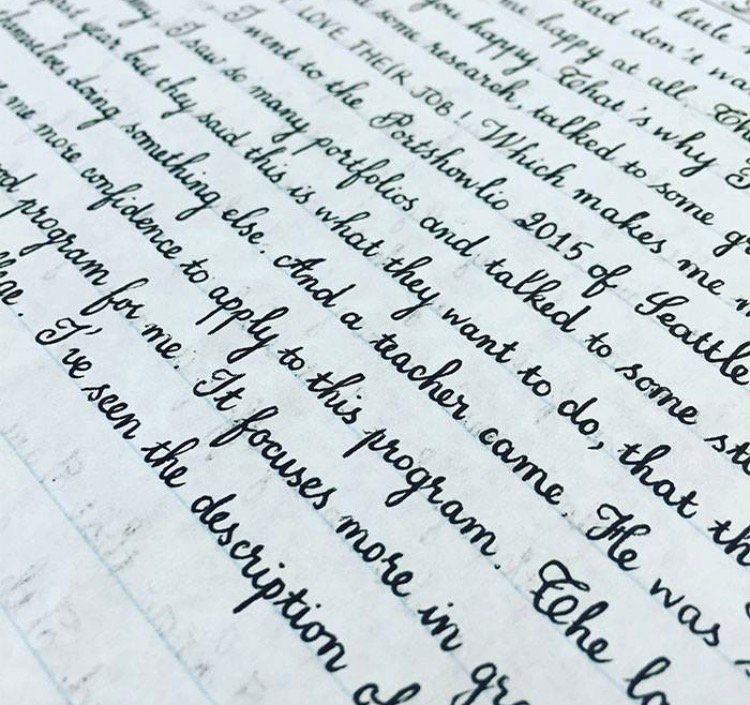 a little
dad don't
me happy at all.
you happy. That's why I
some research, talked to some
LOVE THEIR JOB! Which makes me
I went to the Portshowlio 2015 of Seattle
I saw so many portfolios and talked to some
first year but they said this is what they want to do, that
themselves doing something else. And a teacher came. He was
me more confidence to apply to this program. The
program for me. It focuses more in
I've seen the description